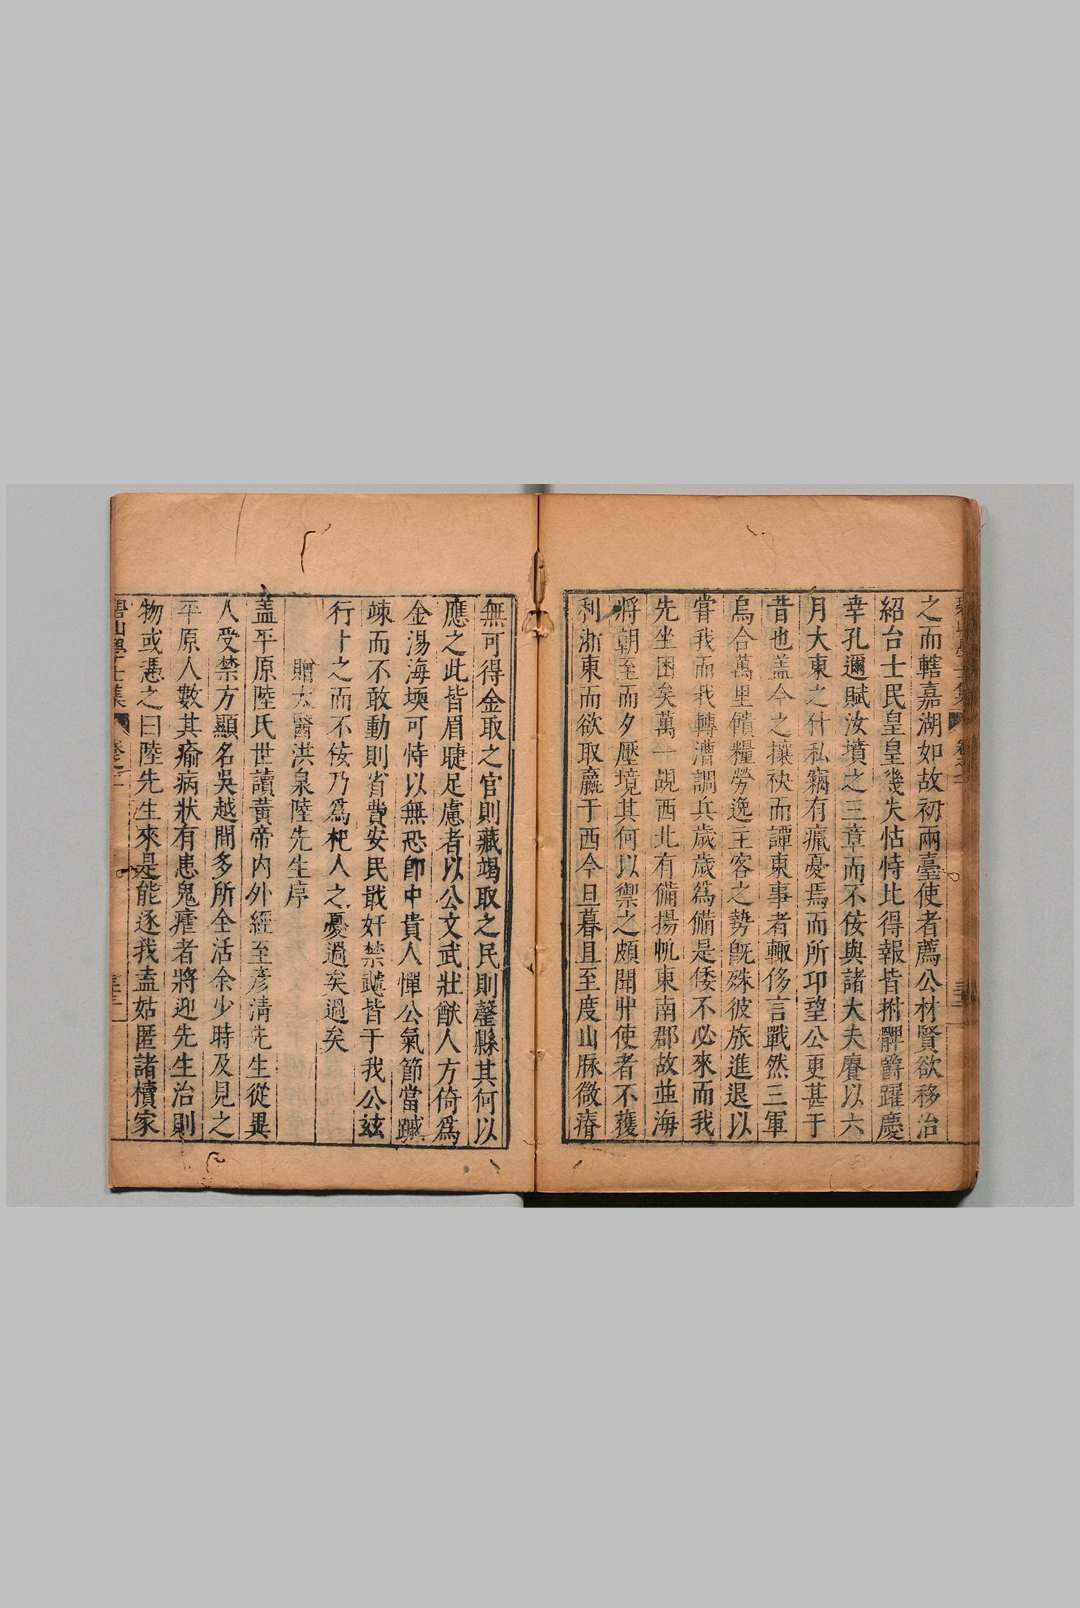 之而轄嘉湖如故初兩臺使者薦公材賢欲移治
紹台士民皇皇幾失怙恃比得報皆拊髀爵躍慶
幸孔邇賦汝墳之三章而不佞與諸大夫賡以六
月大東之什私竊有癙憂焉而所卬望公更甚于
昔也盖今之攘袂而譚東事者輙侈言戰然三軍
烏合萬里饋糧勞逸主客之勢旣殊彼旅進退以
嘗我而我轉漕調兵歲歲爲備是倭不必來而我
先坐困矣萬一覘西北有備揚帆東南郡故並海
將朝至而夕壓境其何以禦之頗聞丱使者不獲
利浙東而欲取贏于西今旦暮且至度山脉微瘠
無可得金取之官則藏竭取之民則罄縣其何以
應之此皆眉睫足慮者以公文武壯猷人方倚爲
金湯海堧可恃以無恐卽中貴人憚公氣節當踧
竦而不敢動則省費安民戢奸禁虣皆于我公兹
行卜之而不佞乃爲杞人之憂過矣過矣
贈太醫洪泉陸先生序
盖平原陸氏世讀黃帝內外經至彥清先生從異
人受禁方顯名吳越間多所全活余少時及見之
平原人數其瘉病狀有患鬼瘧者將迎先生治則
物或憑之曰陸先生來是能逐我盍姑匿諸櫝家
碧山學士集 卷之一